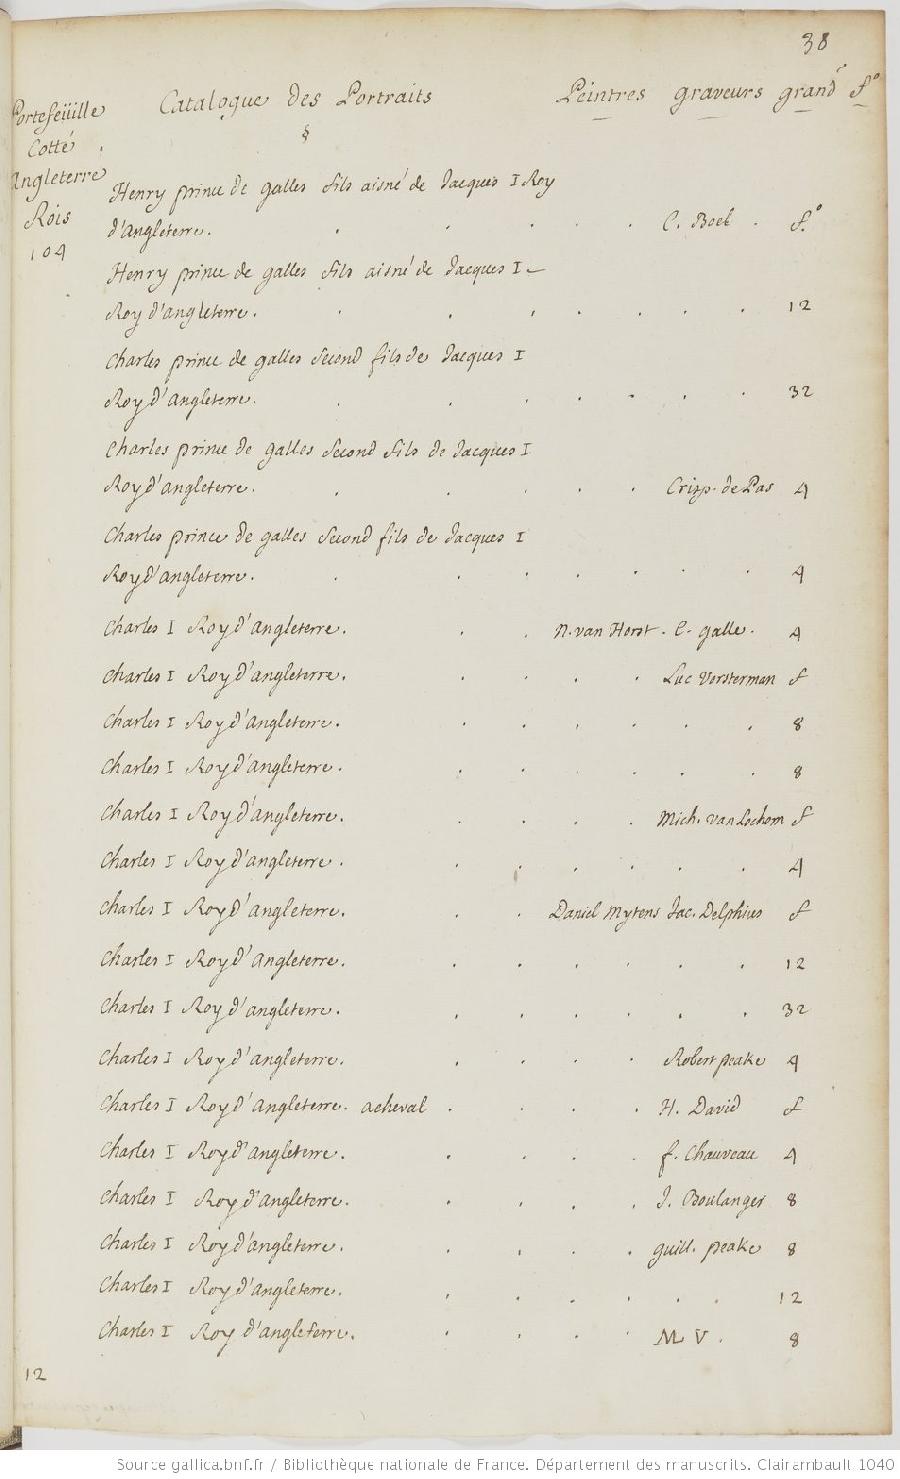 38
Catalogue des Portraits Peintres graveurs grand.r f.o
§
Portefeüille
Cotté
Angleterre
Rois
104
Henry prince de galles fils aisné de Jacques I Roy
d'Angleterre. C. Boel f.o
Henry prince de galles fils aisné de Jacques I
Roy d'angleterre. 12
Charles prince de galles second fils de Jacques I
Roy d'angleterre. 32
Charles prince de galles second fils de Jacques I
Roy d'angleterre. Crisp. de Pas 4
Charles prince de galles second fils de Jacques I
Roy d'angleterre. 4
Charles I Roy d'angleterre. N. van Horst. C. galle. 4
Charles I Roy d'angleterre. Luc Vorsterman f
Charles I Roy d'angleterre. 8
Charles I Roy d'angleterre. 8
Charles I Roy d'angleterre. Mich. van Lochom f
Charles I Roy d'angleterre. 4
Charles I Roy d'angleterre. Daniel Mytens Jac. Delphius f
Charles I Roy d'angleterre. 12
Charles I Roy d'angleterre. 32
Charles I Roy d'angleterre. Robert peake 4
Charles I Roy d'angleterre. acheval H. David f
Charles I Roy d'angleterre. f. Chauveau 4
Charles I Roy d'angleterre. J. Boulanger 8
Charles I Roy d'angleterre. guill. peake 8
Charles I Roy d'angleterre. 12
Charles I Roy d'angleterre. M V. 8
12
Source gallica.bnf.fr / Bibliothèque nationale de France. Département des manuscrits. Clairambault 1040